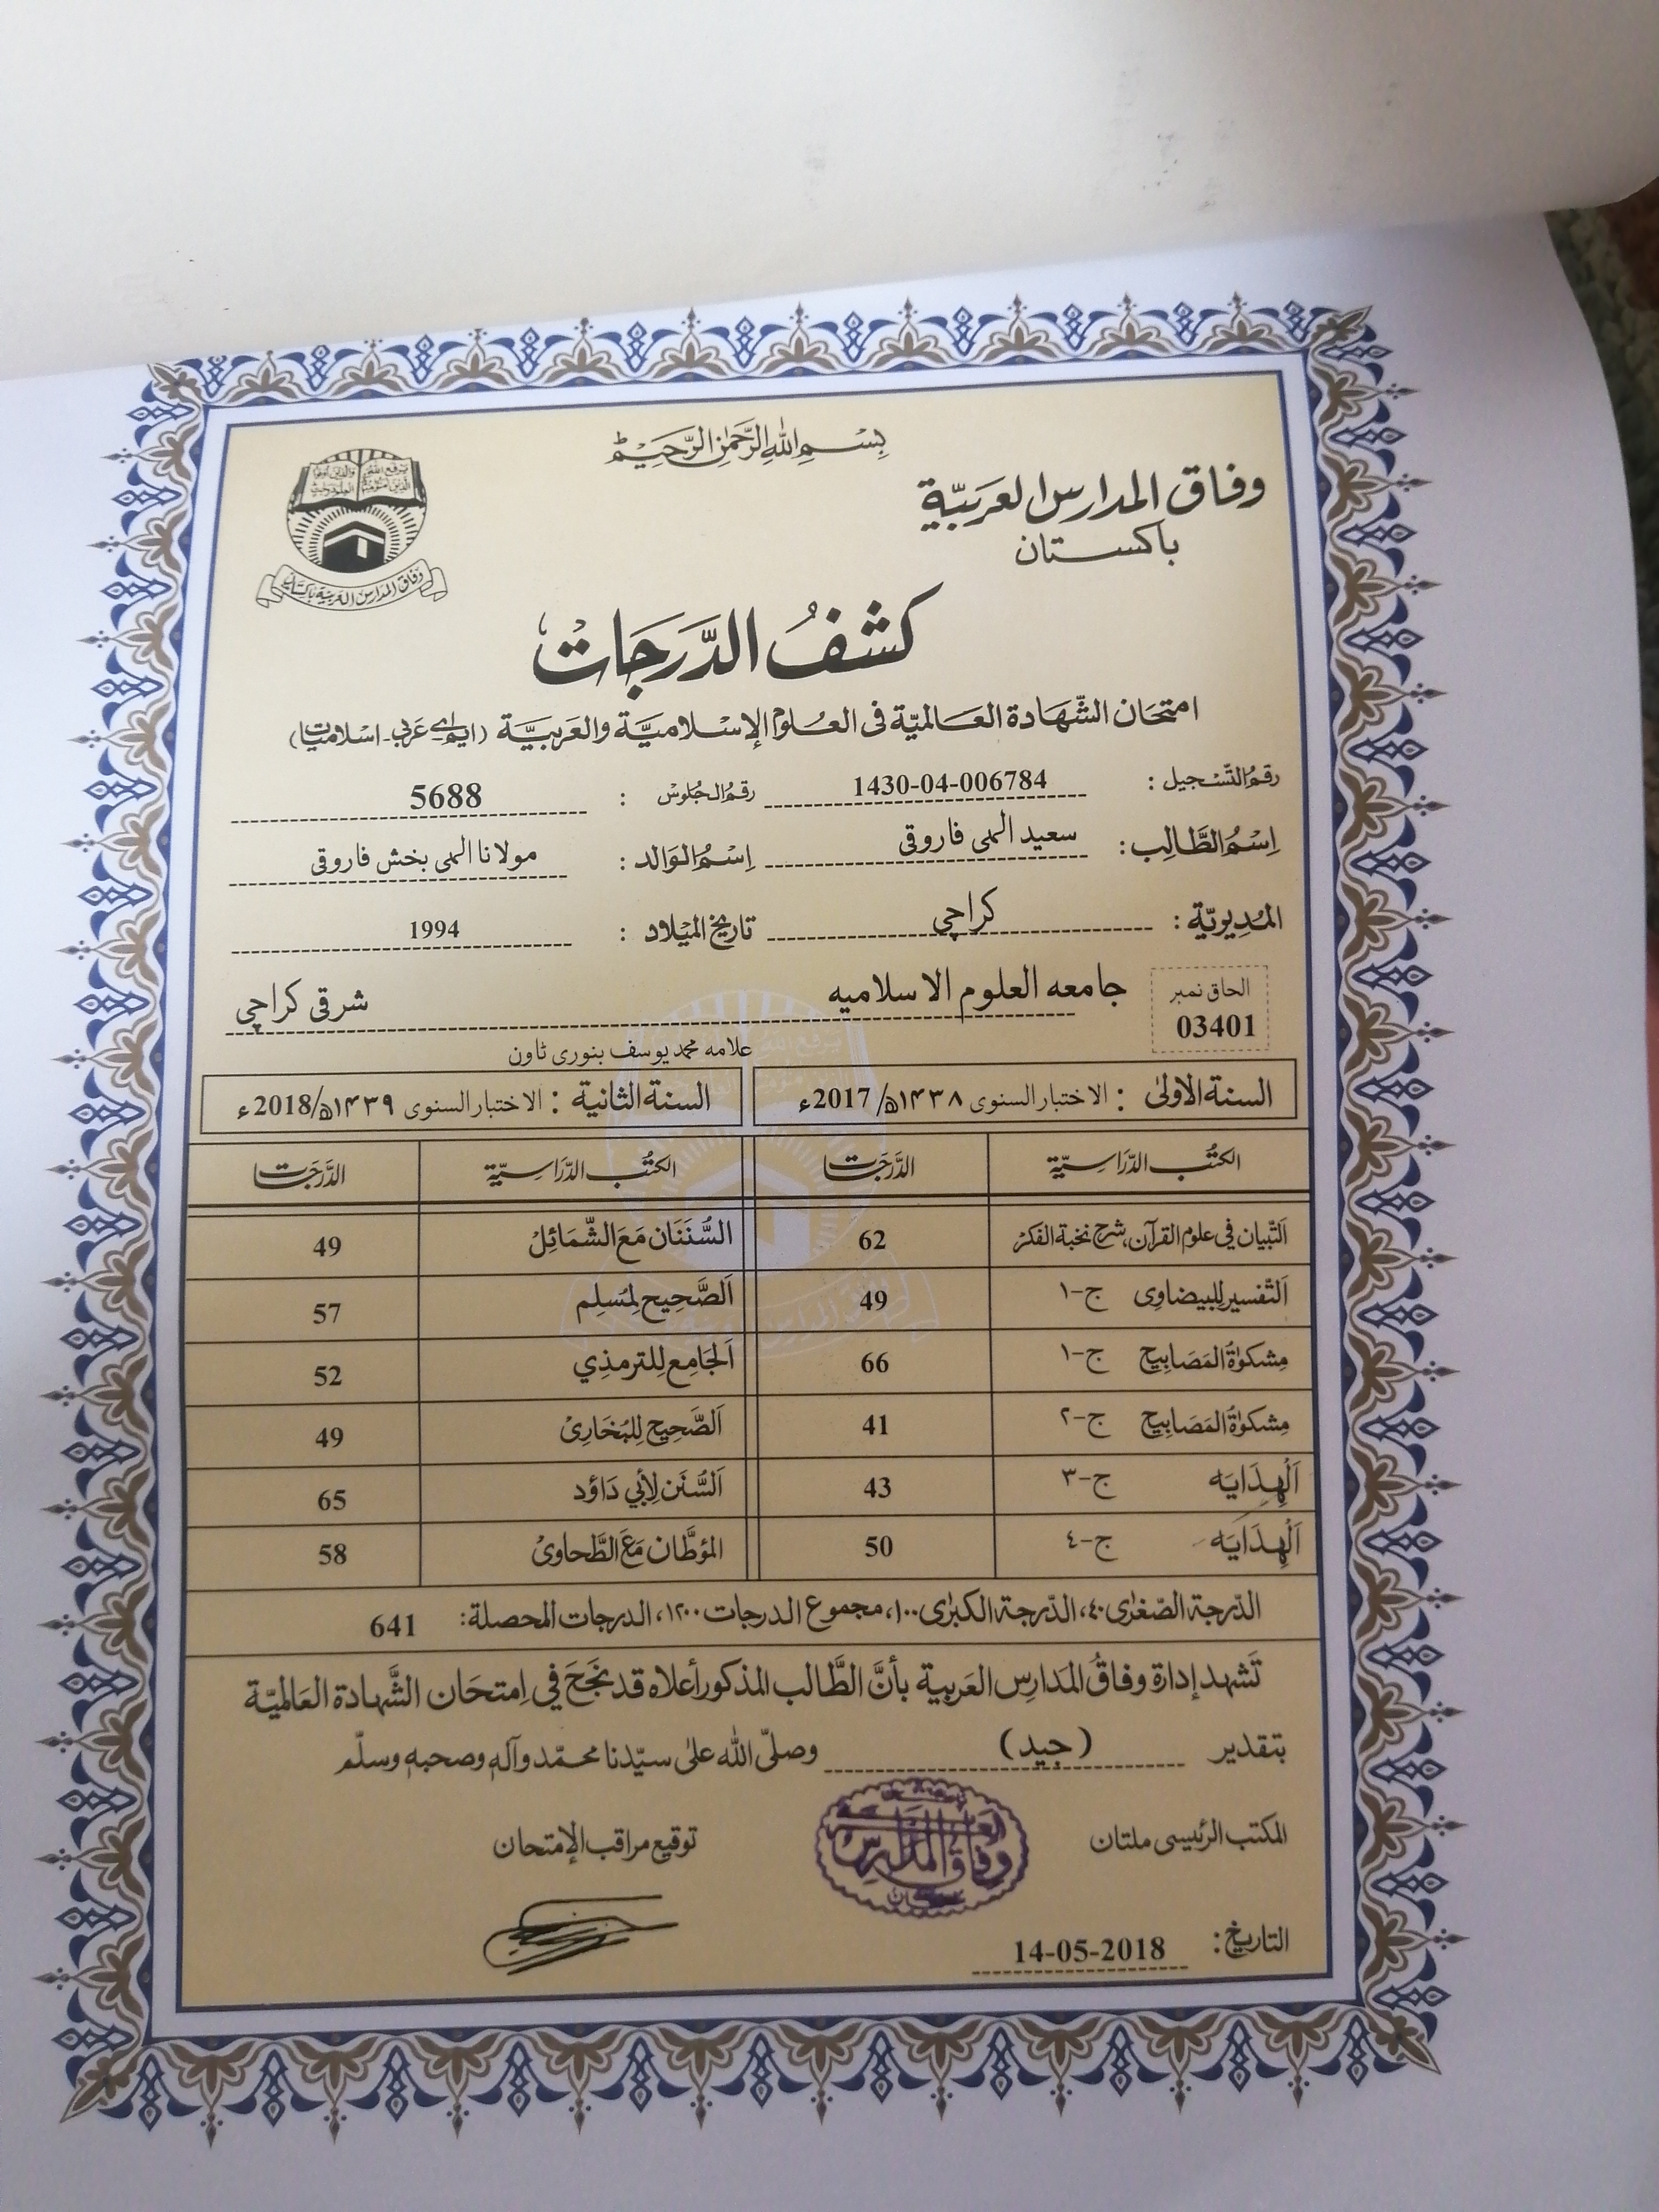 بِسْمِ اللهِ الرَّحْمٰنِ الرَّحِيْمِ
وفاق المدارس العَرَبيّة
باكستان
وفاق المدارس العربية باكستان
كشفُ الدَّرَجَات
امتحَان الشّهَادة العَالميّة فى العُلوم الإسْلاميَّة والعَربيَّة (ایم اے عَربی۔اسْلامیات)
رقمُ التّسْجيل : 1430-04-006784 رقمُ الجُلوس : 5688
اِسْمُ الطَّالِب : سعید الٰہی فاروقی اِسْمُ الوَالد : مولانا الٰہی بخش فاروقی
المُدِيريّة : کراچی تاريخ الميْلاد : 1994
الحاق نمبر
03401
جامعه العلوم الاسلامیه شرقی کراچی
علامه محمد یوسف بنوری ٹاون
السنة الاولىٰ : الاختبار السنوى ۱۴۳۸ھ/2017ء السنة الثانية : الاختبار السنوى ۱۴۳۹ھ/2018ء
الكتُب الدّرَاسِيَّة الدَّرَجَات الكتُب الدّرَاسِيَّة الدَّرَجَات
اَلتّبيان في علوم القرآن،شرح نخبة الفكر 62 السُّنَنَان مَعَ الشَّمَائِلْ 49
اَلتّفسير للبيضاوى ج-١ 49 اَلصَّحِيح لِمُسلِم 57
مِشكوٰةُ المَصَابِيح ج-١ 66 اَلجَامِع لِلترمذِي 52
مِشكوٰةُ المَصَابِيح ج-٢ 41 اَلصَّحِيح لِلبُخَارِىْ 49
اَلْهِدَايَه ج-٣ 43 اَلسُّنَن لِأبي دَاؤد 65
اَلْهِدَايَه ج-٤ 50 المُؤطَّان مَعَ الطَّحاوِىْ 58
الدّرجة الصّغرٰى ٤٠، الدّرجة الكبرٰى ١٠٠، مجموع الدرجات ١٢٠٠، الدرجات المحصلة: 641
تَشهد إدارة وفاقُ المَدارِس العَربية بأنَّ الطَّالب المذكور أعلاه قد نَجَحَ في اِمتحَان الشَّهادة العَالميّة
بتقدیر (جید) وصلّى الله علىٰ سيّدنا محمّد وآله وصحبه وسلّم
المكتب الرئيسى ملتان توقيع مراقب الإمتحان
وفاق المدارس العربية
التاريخ : 14-05-2018